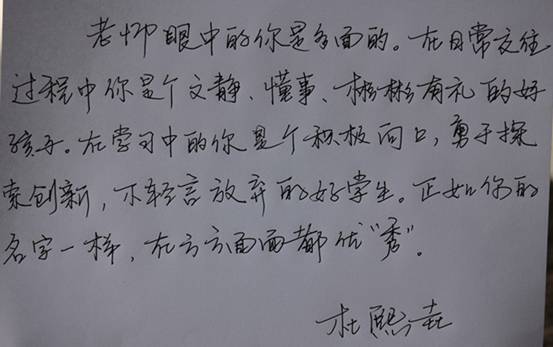 老师眼中的你是多面的。在日常交往
过程中你是个文静、懂事、彬彬有礼的好
孩子。在学习中的你是个积极向口，勇于探
索创新，不轻言放弃的好学生。正如你的
名字一样，在方方面面都优“秀”。
杜熙垚